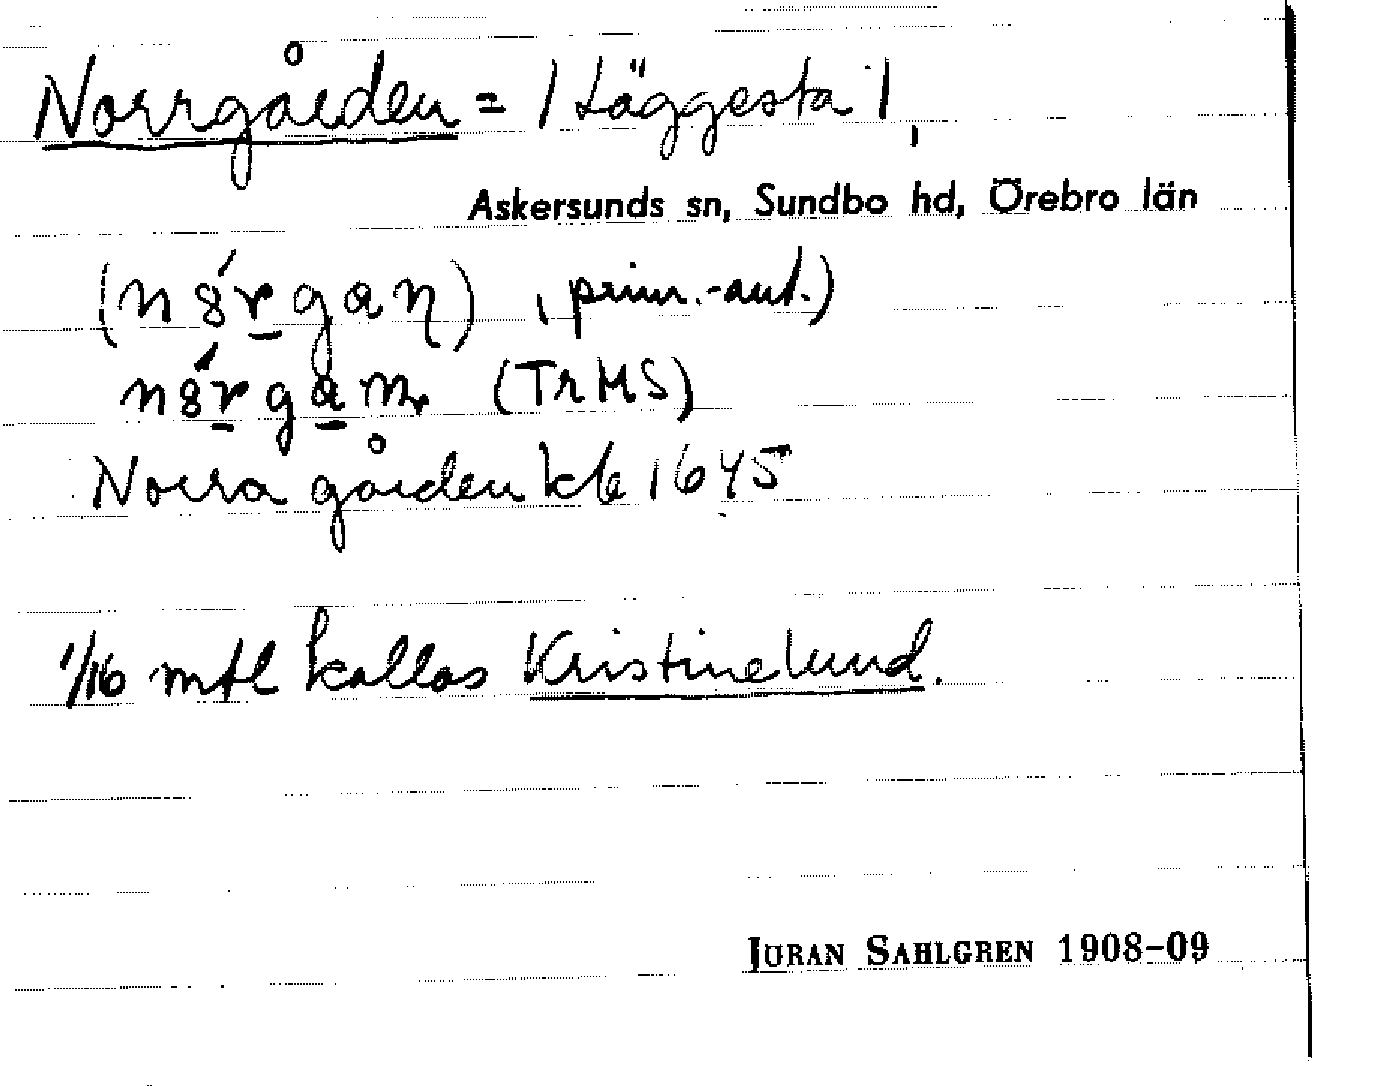 Norrgården = / Läggesta /,
Askersunds sn, Sundbo hd, Örebro län
(n8́rgaŋ) , prim.-aut.)
n8́rgam (TrMS)
Norra gården kb 1645
1/16 mtl kallas Kristinelund.
JÖRAN SAHLGREN 1908–09